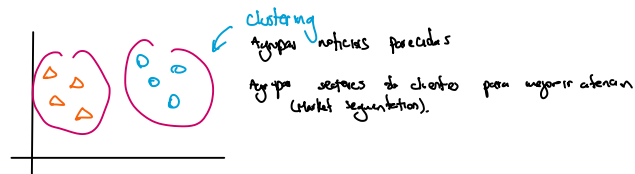 clustering
Agrupar noticias parecidas
Agrupar sectores de clientes para mejorar atencion
(Market segmentation).